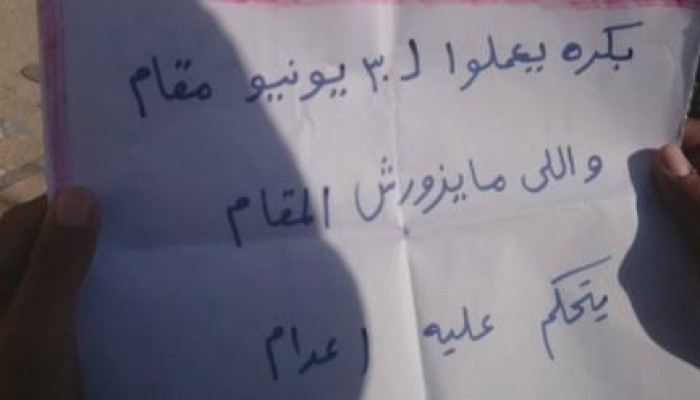 بكره يعملوا لـ ٣٠ يونيو مقام
واللى مايزورش المقام
يتحكم عليه اعدام